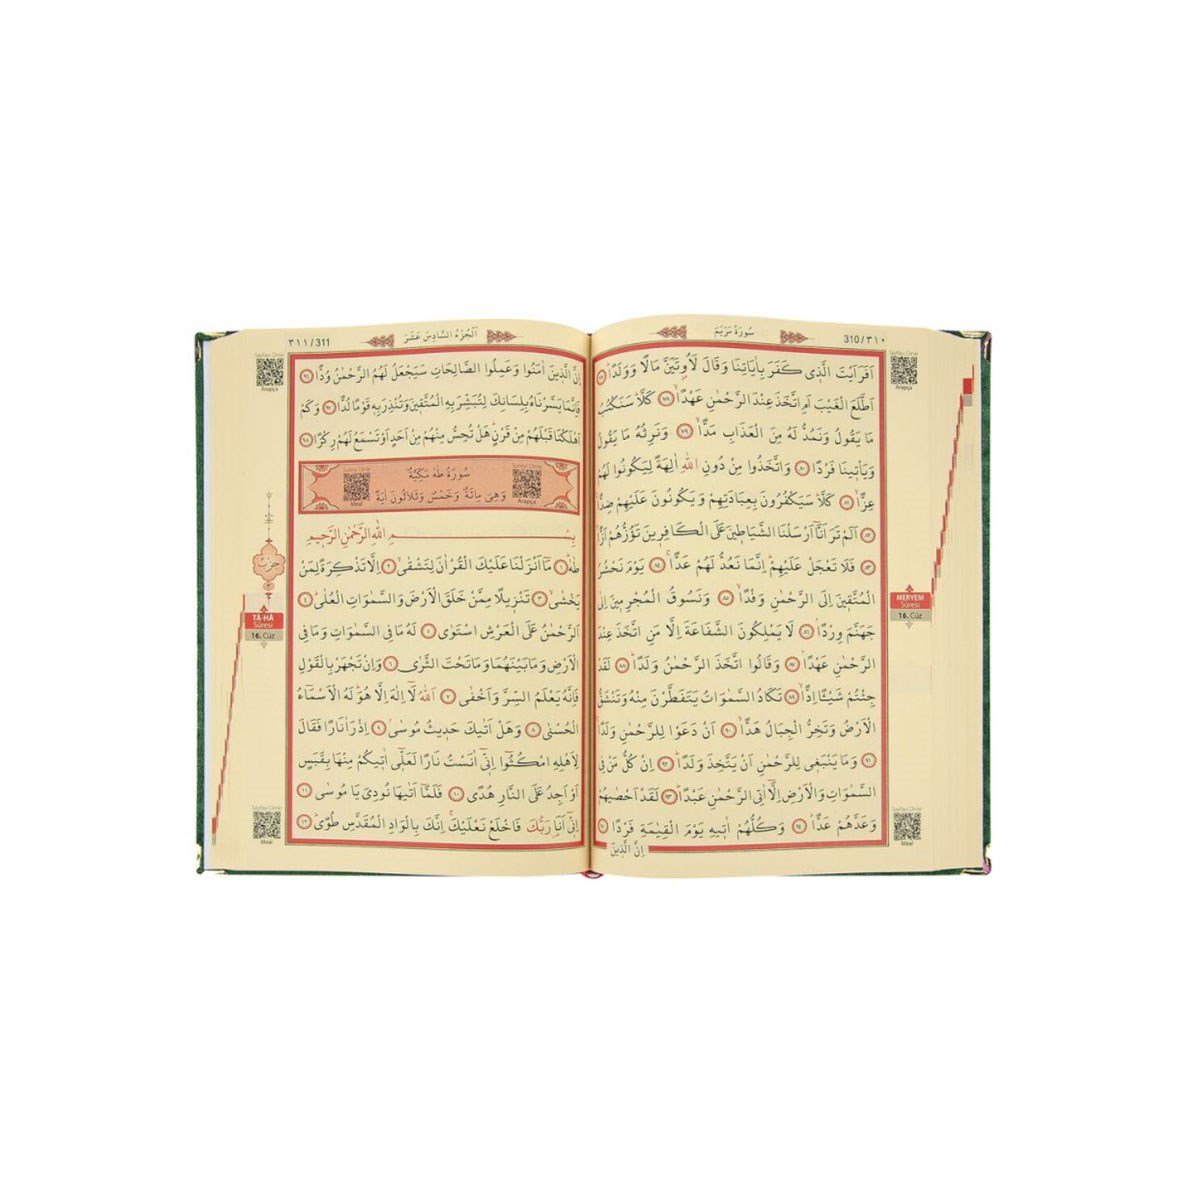 310/٣١٠
سُورَةُ مَرْيَمَ
Sayfayı Dinle
Arapça
اَفَرَاَيْتَ الَّذ۪ي كَفَرَ بِاٰيَاتِنَا وَقَالَ لَاُو۫تَيَنَّ مَالًا وَوَلَدًاۜ ﴿٧٧﴾
اَطَّلَعَ الْغَيْبَ اَمِ اتَّخَذَ عِنْدَ الرَّحْمٰنِ عَهْدًاۙ ﴿٧٨﴾ كَلَّاۜ سَنَكْتُبُ
مَا يَقُولُ وَنَمُدُّ لَهُ مِنَ الْعَذَابِ مَدًّاۙ ﴿٧٩﴾ وَنَرِثُهُ مَا يَقُولُ
وَيَأْت۪ينَا فَرْدًا ﴿٨٠﴾ وَاتَّخَذُوا مِنْ دُونِ اللّٰهِ اٰلِهَةً لِيَكُونُوا لَهُمْ
عِزًّاۙ ﴿٨١﴾ كَلَّاۜ سَيَكْفُرُونَ بِعِبَادَتِهِمْ وَيَكُونُونَ عَلَيْهِمْ ضِدًّا۟
﴿٨٢﴾ اَلَمْ تَرَ اَنَّٓا اَرْسَلْنَا الشَّيَاط۪ينَ عَلَى الْكَافِر۪ينَ تَؤُزُّهُمْ اَزًّاۙ
﴿٨٣﴾ فَلَا تَعْجَلْ عَلَيْهِمْۜ اِنَّمَا نَعُدُّ لَهُمْ عَدًّاۚ ﴿٨٤﴾ يَوْمَ نَحْشُرُ
الْمُتَّق۪ينَ اِلَى الرَّحْمٰنِ وَفْدًاۙ ﴿٨٥﴾ وَنَسُوقُ الْمُجْرِم۪ينَ اِلٰى
جَهَنَّمَ وِرْدًاۢ ﴿٨٦﴾ لَا يَمْلِكُونَ الشَّفَاعَةَ اِلَّا مَنِ اتَّخَذَ عِنْدَ
الرَّحْمٰنِ عَهْدًاۢ ﴿٨٧﴾ وَقَالُوا اتَّخَذَ الرَّحْمٰنُ وَلَدًاۜ ﴿٨٨﴾ لَقَدْ
جِئْتُمْ شَيْـًٔا اِدًّاۙ ﴿٨٩﴾ تَكَادُ السَّمٰوَاتُ يَتَفَطَّرْنَ مِنْهُ وَتَنْشَقُّ
الْاَرْضُ وَتَخِرُّ الْجِبَالُ هَدًّاۙ ﴿٩٠﴾ اَنْ دَعَوْا لِلرَّحْمٰنِ وَلَدًاۚ
﴿٩١﴾ وَمَا يَنْبَغ۪ي لِلرَّحْمٰنِ اَنْ يَتَّخِذَ وَلَدًاۜ ﴿٩٢﴾ اِنْ كُلُّ مَنْ فِي
السَّمٰوَاتِ وَالْاَرْضِ اِلَّٓا اٰتِي الرَّحْمٰنِ عَبْدًاۜ ﴿٩٣﴾ لَقَدْ اَحْصٰيهُمْ
وَعَدَّهُمْ عَدًّاۜ ﴿٩٤﴾ وَكُلُّهُمْ اٰت۪يهِ يَوْمَ الْقِيٰمَةِ فَرْدًا ﴿٩٥﴾
اِنَّ الَّذ۪ينَ
MERYEM
Sûresi
16. Cüz
Sayfayı Dinle
Meal
اَلْجُزْءُ السَّادِسَ عَشَرَ
٣١١/311
Sayfayı Dinle
Arapça
اِنَّ الَّذ۪ينَ اٰمَنُوا وَعَمِلُوا الصَّالِحَاتِ سَيَجْعَلُ لَهُمُ الرَّحْمٰنُ وُدًّا ﴿٩٦﴾
فَاِنَّمَا يَسَّرْنَاهُ بِلِسَانِكَ لِتُبَشِّرَ بِهِ الْمُتَّق۪ينَ وَتُنْذِرَ بِه۪ قَوْمًا لُدًّا ﴿٩٧﴾ وَكَمْ
اَهْلَكْنَا قَبْلَهُمْ مِنْ قَرْنٍۜ هَلْ تُحِسُّ مِنْهُمْ مِنْ اَحَدٍ اَوْ تَسْمَعُ لَهُمْ رِكْزًا ﴿٩٨﴾
سُورَةُ طٰهٰ مَكِّيَّةٌ
وَهِيَ مِائَةٌ وَخَمْسٌ وَثَلَاثُونَ اٰيَةً
Sureyi Dinle
Arapça
Sureyi Dinle
Meal
بِسْمِ اللّٰهِ الرَّحْمٰنِ الرَّح۪يمِ
طٰهٰۜ ﴿١﴾ مَٓا اَنْزَلْنَا عَلَيْكَ الْقُرْاٰنَ لِتَشْقٰىۙ ﴿٢﴾ اِلَّا تَذْكِرَةً لِمَنْ
يَخْشٰىۙ ﴿٣﴾ تَنْز۪يلًا مِمَّنْ خَلَقَ الْاَرْضَ وَالسَّمٰوَاتِ الْعُلٰىۜ ﴿٤﴾
اَلرَّحْمٰنُ عَلَى الْعَرْشِ اسْتَوٰى ﴿٥﴾ لَهُ مَا فِي السَّمٰوَاتِ وَمَا فِي
الْاَرْضِ وَمَا بَيْنَهُمَا وَمَا تَحْتَ الثَّرٰى ﴿٦﴾ وَاِنْ تَجْهَرْ بِالْقَوْلِ
فَاِنَّهُ يَعْلَمُ السِّرَّ وَاَخْفٰى ﴿٧﴾ اَللّٰهُ لَٓا اِلٰهَ اِلَّا هُوَۜ لَهُ الْاَسْمَٓاءُ
الْحُسْنٰى ﴿٨﴾ وَهَلْ اَتٰيكَ حَد۪يثُ مُوسٰىۢ ﴿٩﴾ اِذْ رَاٰ نَارًا فَقَالَ
لِاَهْلِهِ امْكُثُٓوا اِنّ۪ٓي اٰنَسْتُ نَارًا لَعَلّ۪ٓي اٰت۪يكُمْ مِنْهَا بِقَبَسٍ
اَوْ اَجِدُ عَلَى النَّارِ هُدًى ﴿١٠﴾ فَلَمَّٓا اَتٰيهَا نُودِيَ يَا مُوسٰى ﴿١١﴾
اِنّ۪ٓي اَنَا۬ رَبُّكَ فَاخْلَعْ نَعْلَيْكَۚ اِنَّكَ بِالْوَادِ الْمُقَدَّسِ طُوًىۜ ﴿١٢﴾
حِزْبْ
TÂ-HÂ
Sûresi
16. Cüz
Sayfayı Dinle
Meal